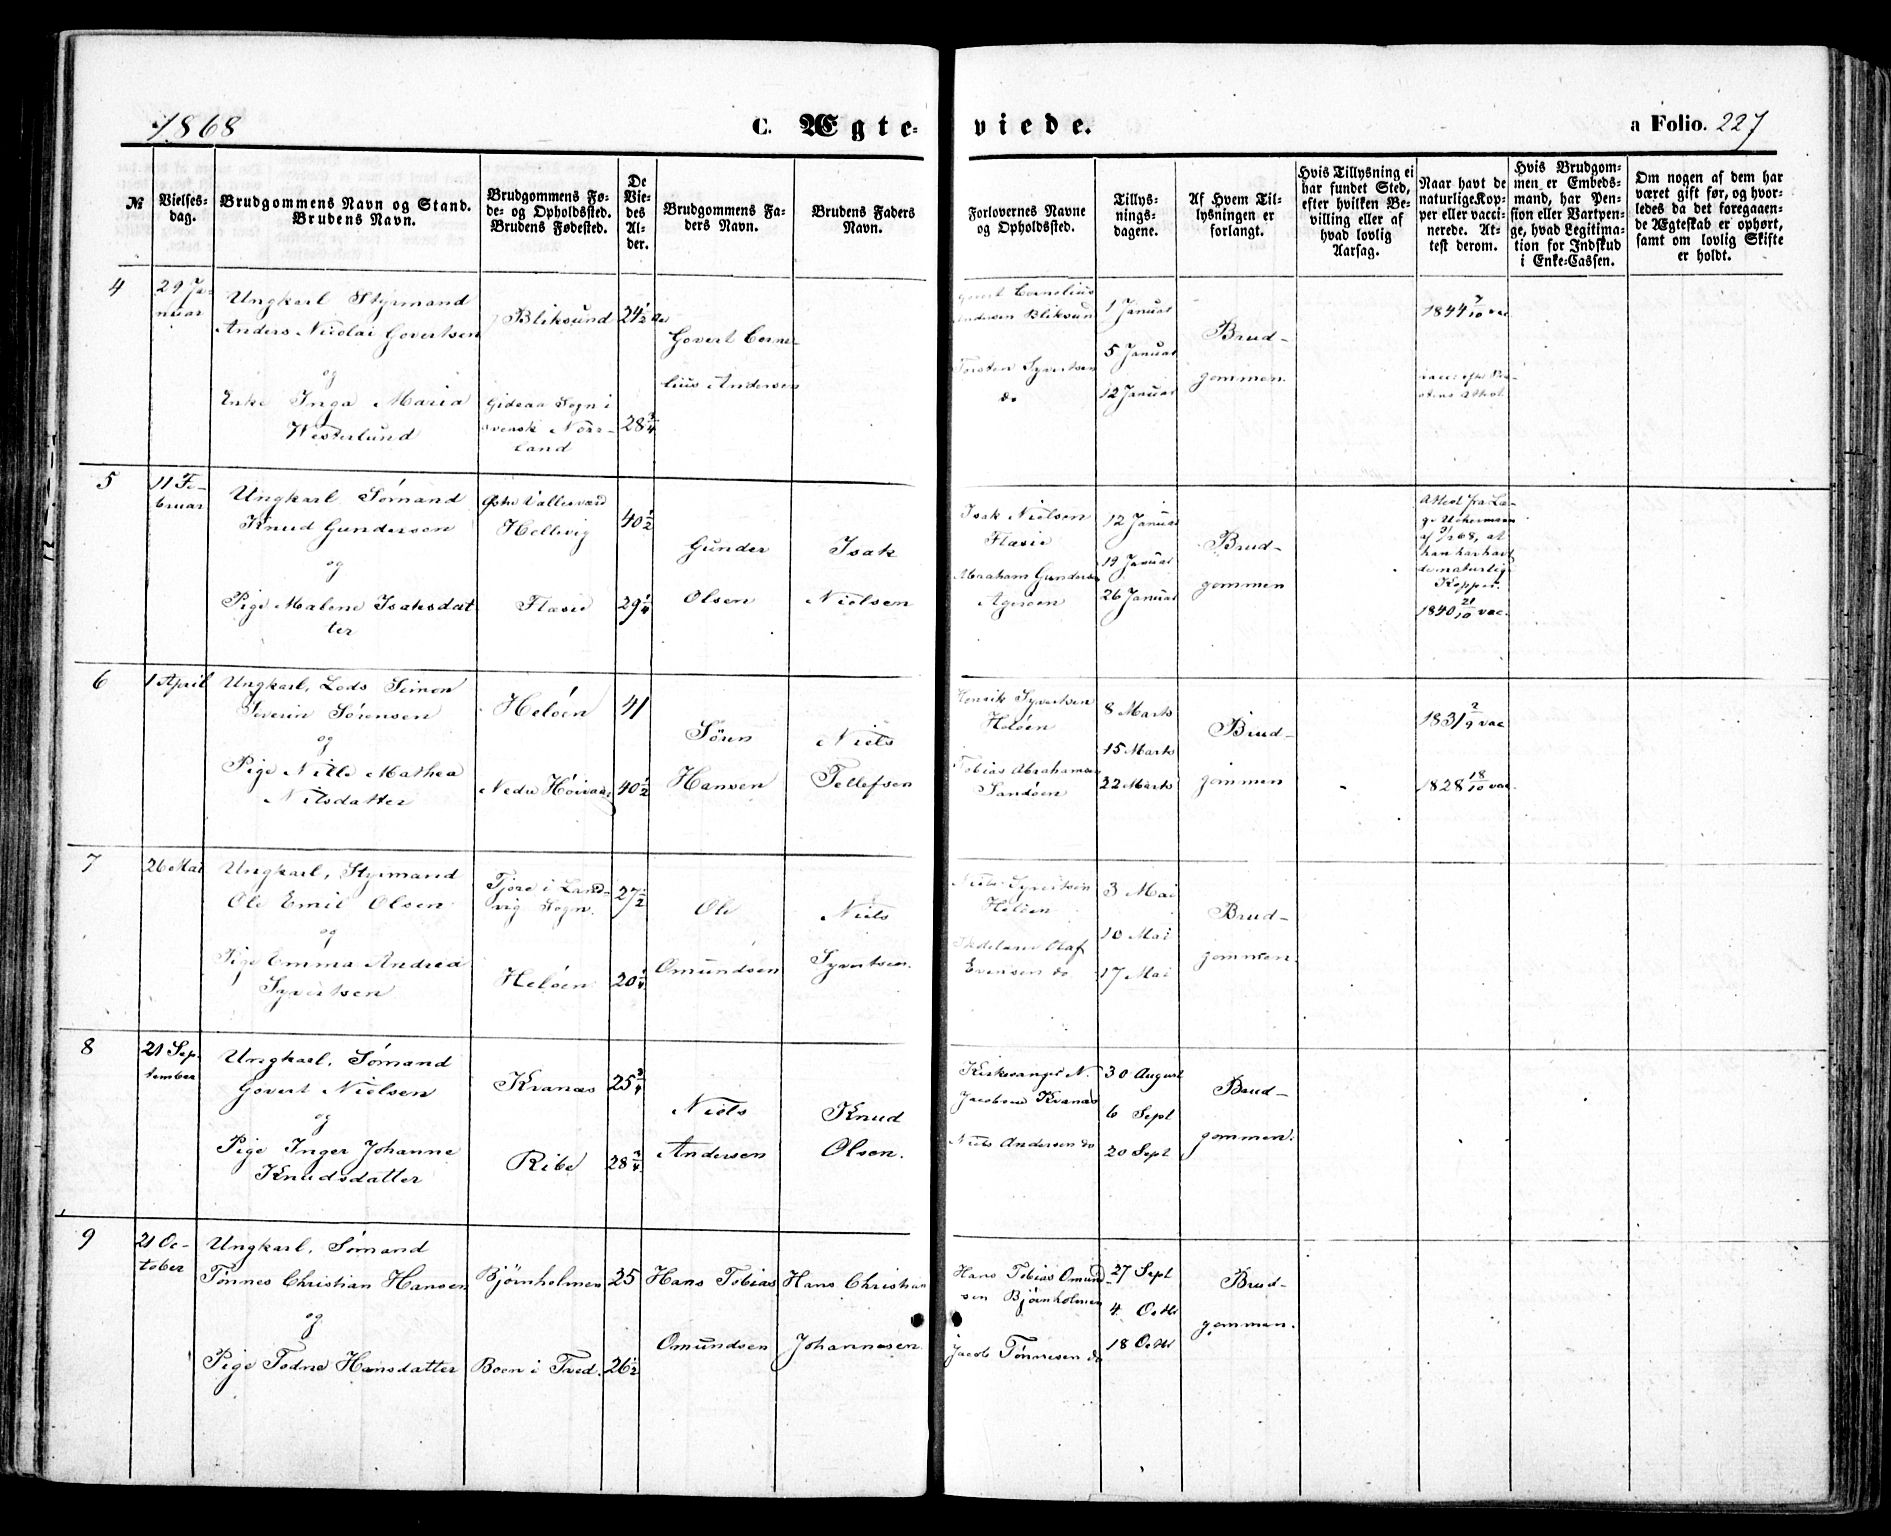 1868 C. Ægte- viede. a Folio. 227
№
Vielses-
dag.
Brudgommens Navn og Stand.
Brudens Navn.
Brudgommens Fø-
de- og Opholdssted.
Brudens Fødested.
De
Vie-
des
Al-
der.
Brudgommens Fa-
ders Navn.
Brudens Faders
Navn.
Forlovernes Navne
og Opholdssted.
Tillys-
nings-
dagene.
Af Hvem Til-
lysningen er
forlangt.
Hvis Tillysning ei
har fundet Sted,
efter hvilken Be-
villing eller af
hvad lovlig
Aarsag.
Naar havt de
naturlige Kop-
per eller vacci-
nerede. At-
test derom.
Hvis Brudgom-
men er Embeds-
mand, har Pen-
sion eller Vartpen-
ge, hvad Legitima-
tion for Indskud
i Enke-Cassen.
Om nogen af dem har
været gift før, og hvor-
ledes da det foregaaen-
de Ægteskab er ophørt,
samt om lovlig Skifte
er holdt.
4
29 Ja-
nuar
Ungkarl Styrmand
Anders Nicolai Govertsen
og
Enke Inga Maria
Westerlund
Bliksund
Gideaa Sogn i
svensk Norr-
land
24 1/2 Aar
28 3/4
Govert Corne-
lius Andersen
Govert Cornelius
Andersen Bliksund
Torsten Syvertsen
do
1 Januar
5 Januar
12 Januar
Brud-
gommen.
1844 7/10 vac
vacc. efter Præ-
stens Attest
5
11 Fe-
bruar
Ungkarl Sømand
Knud Gundersen
og
Pige Malene Isaksdat
ter
Østre Vallesværd
Hellevig
Flasie
40 1/2
29 1/4
Gunder
Olsen
Isak
Nielsen
Isak Nielsen
Flasie
Abraham Gundersen
Ageroen
12 Januar
19 Januar
26 Januar
Brud-
gommen
Attest fra Læ-
ge Uchermann
af 9/1 68, at
han har havt
de naturlige
Kopper.
1840 21/10 vac.
6
1 April
Ungkarl, Lods Simon
Severin Sørensen
og
Pige Nille Mathea
Nilsdatter
Heløen
Nedre Høivaag
41
40 1/2
Sören
Hansen
Niels
Tellefsen
Henrik Syvertsen
Heløen
Tobias Abrahamsen
Sandøen
8 Marts
15 Marts
22 Marts
Brud-
gommen
1831 2/9 vac
1828 18/10 vac.
7
26 Mai
Ungkarl, Styrmand
Ole Emil Olsen
og
Pige Emma Andrea
Syvertsen
Tjore i Land-
vig Sogn.
Heløen
27 1/2
20 1/4
Ole
Omundsen
Niels
Syvertsen.
Niels Syvertsen
Heløen
Olaf
Evensen do
3 Mai
10 Mai
17 Mai
Brud-
gommen.
8
21 Sep-
tember
Ungkarl, Sømand
Govert Nielsen
og
Pige Inger Johanne
Knudsdatter
Kranæs
Ribe
25 3/4
28 3/4
Niels
Andersen
Knud
Olsen.
Kirkesanger N.
Jacobsen Kvanæs
Niels Andersen do
30 August
6 Sept
20 Sept
Brud-
gommen.
9
21 Oc-
tober
Ungkarl, Sømand
Tønnes Christian Hansen
og
Pige Todne Hansdatter
Bjørnholmen
Boen i Tved.
25
26 1/2
Hans Tobias
Omundsen
Hans Christian
Johannesen
Hans Tobias Omund-
sen Bjørnholmen
Jacob Tönnesen do
27 Sept
4 Octbr
18 Octbr
Brud-
gommen.